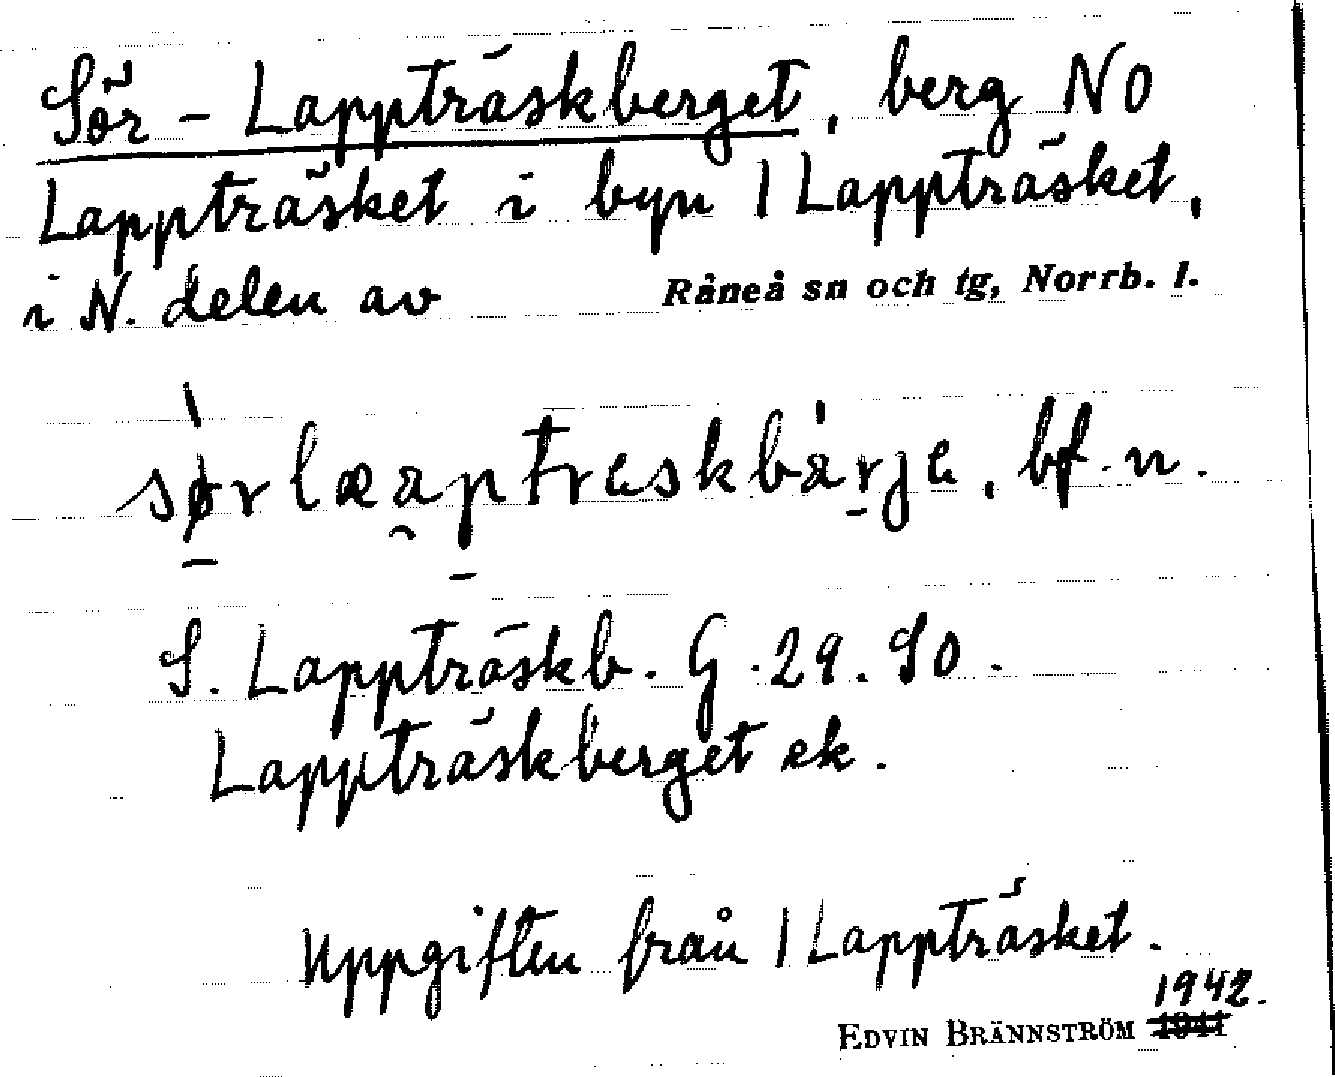 Sör-Lappträskberget, berg NO
Lappträsket i byn 1 Lappträsket,
i N. delen av Råneå sn och tg, Norrb. l.
sørlæaptræskbàrje, bf. n.
S. Lappträskb. G. 29. SO.
Lappträskberget ek.
Uppgiften från 1 Lappträsket.
1942.
EDVIN BRÄNNSTRÖM 1941